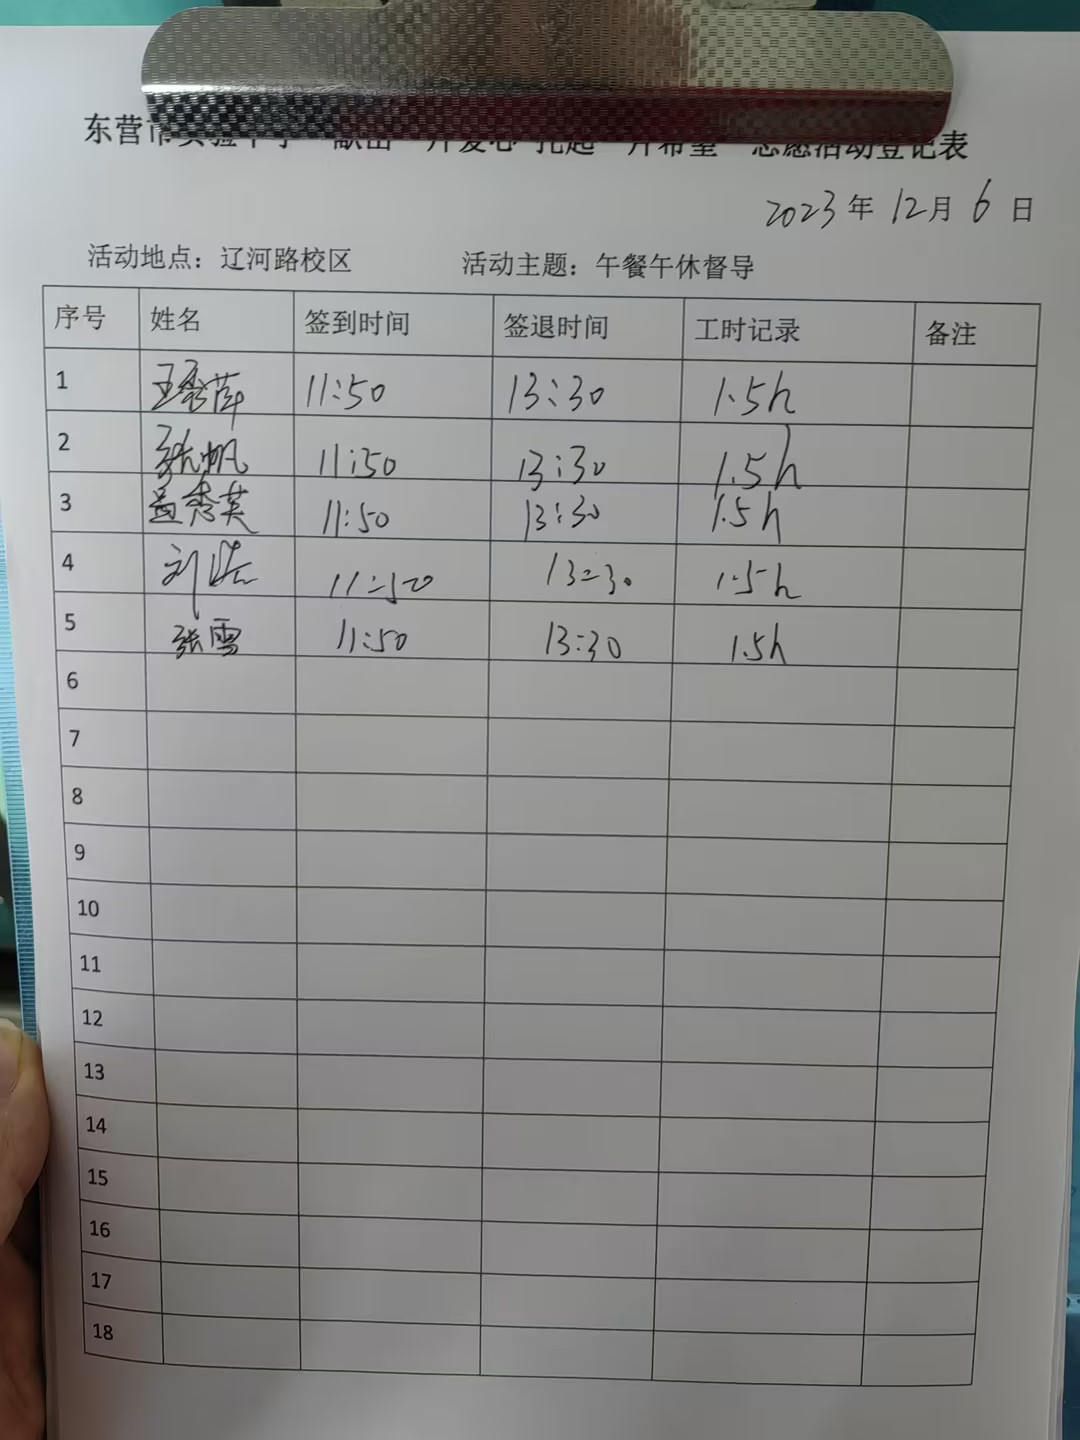 东营市实验中学“献出一片爱心 托起一片希望”志愿活动登记表
2023年 12月 6日
活动地点：辽河路校区 活动主题：午餐午休督导
序号 姓名 签到时间 签退时间 工时记录 备注
1 11:50 13:30 1.5h
2 张帆 11:50 13:30 1.5h
3 孟秀英 11:50 13:30 1.5h
4 11:50 13:30 1.5h
5 张雪 11:50 13:30 1.5h
6
7
8
9
10
11
12
13
14
15
16
17
18